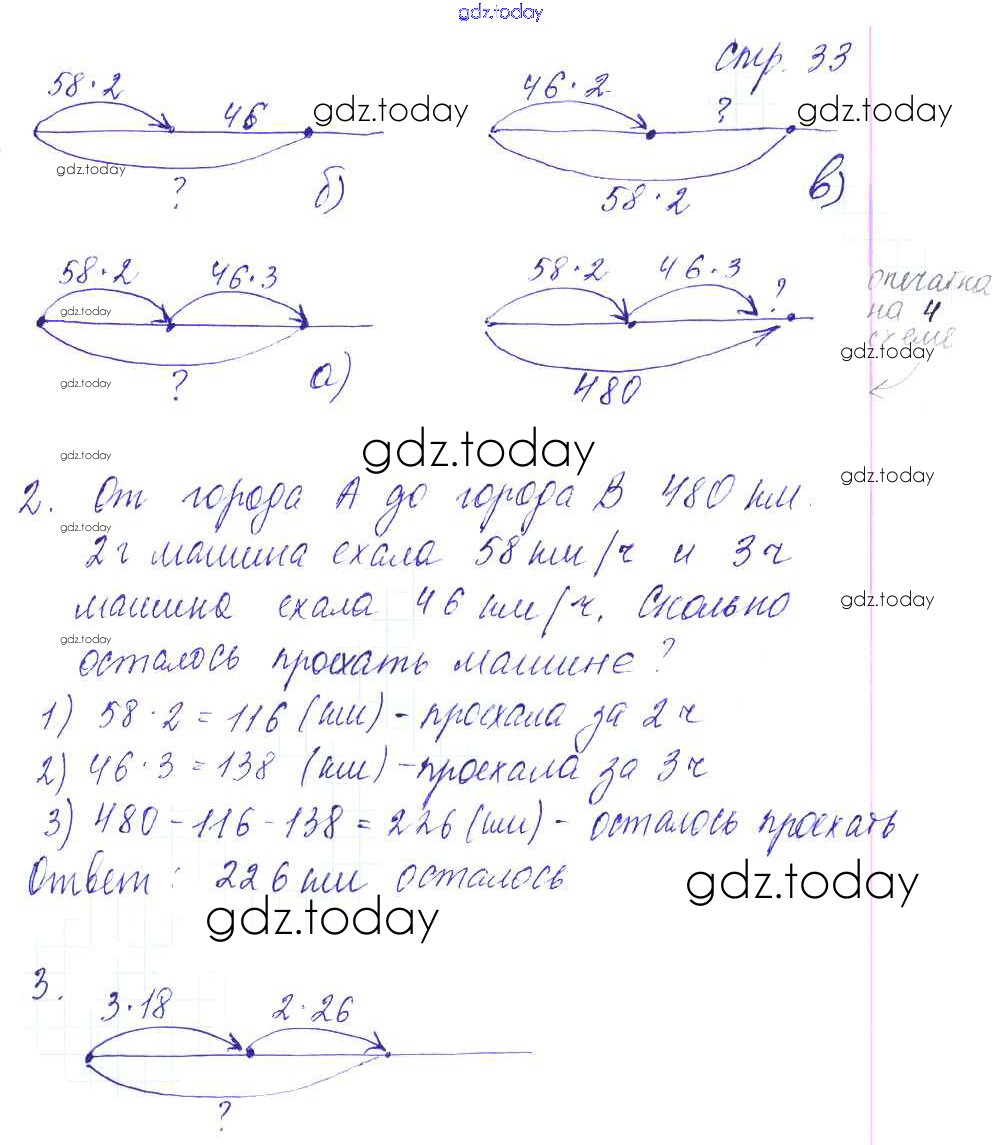 gdz.today
стр. 33
58·2
46
gdz.today
46·2
?
gdz.today
gdz.today
?
б)
58·2
в)
58·2
46·3
58·2
46·3
?
опечатка
на 4
схеме
gdz.today
gdz.today
gdz.today
?
а)
480
gdz.today
gdz.today
gdz.today
2. От города А до города В 480 км.
gdz.today
2 ч машина ехала 58 км/ч и 3 ч
машина ехала 46 км/ч. Сколько
gdz.today
gdz.today
осталось проехать машине?
1) 58·2=116 (км) - проехала за 2 ч
2) 46·3=138 (км) - проехала за 3 ч
3) 480-116-138=226 (км) - осталось проехать
Ответ: 226 км осталось
gdz.today
gdz.today
3.
3·18
2·26
?